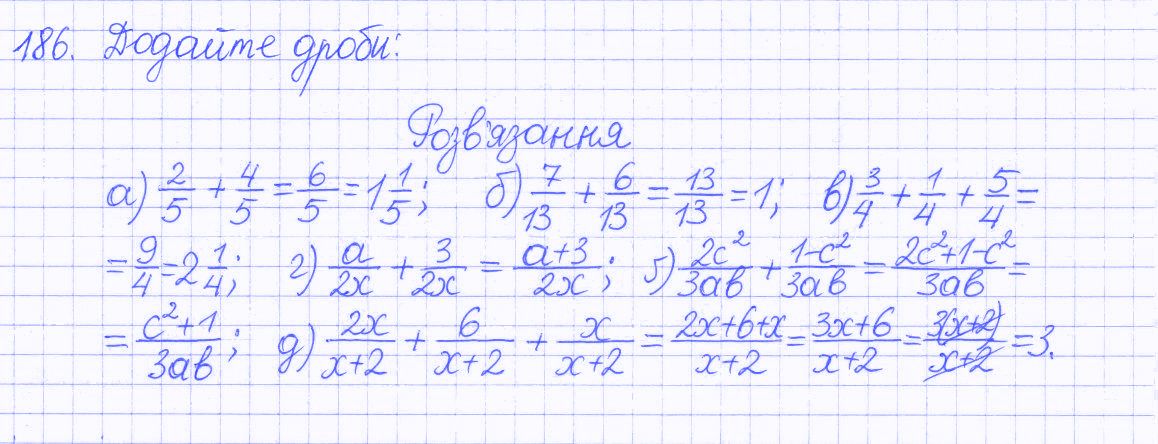 186. Додайте дроби:
Розв'язання
а) 2/5 + 4/5 = 6/5 = 1 1/5; б) 7/13 + 6/13 = 13/13 = 1; в) 3/4 + 1/4 + 5/4 =
= 9/4 = 2 1/4; г) a/2x + 3/2x = a+3/2x; ґ) 2c²/3ab + 1-c²/3ab = 2c²+1-c²/3ab =
= c²+1/3ab; д) 2x/x+2 + 6/x+2 + x/x+2 = 2x+6+x/x+2 = 3x+6/x+2 = 3(x+2)/x+2 = 3.